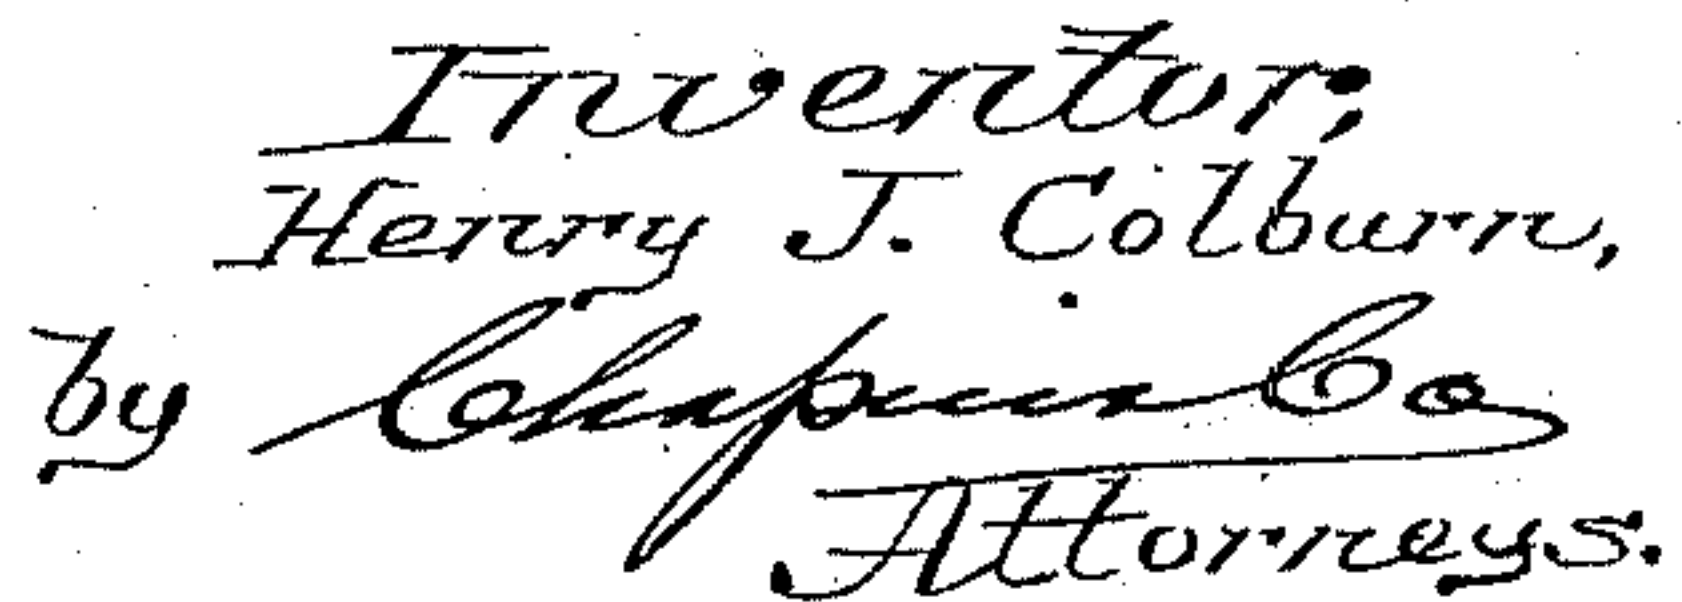 Inventor;
Henry J. Colburn,
by Chapin & Co
Attorneys.